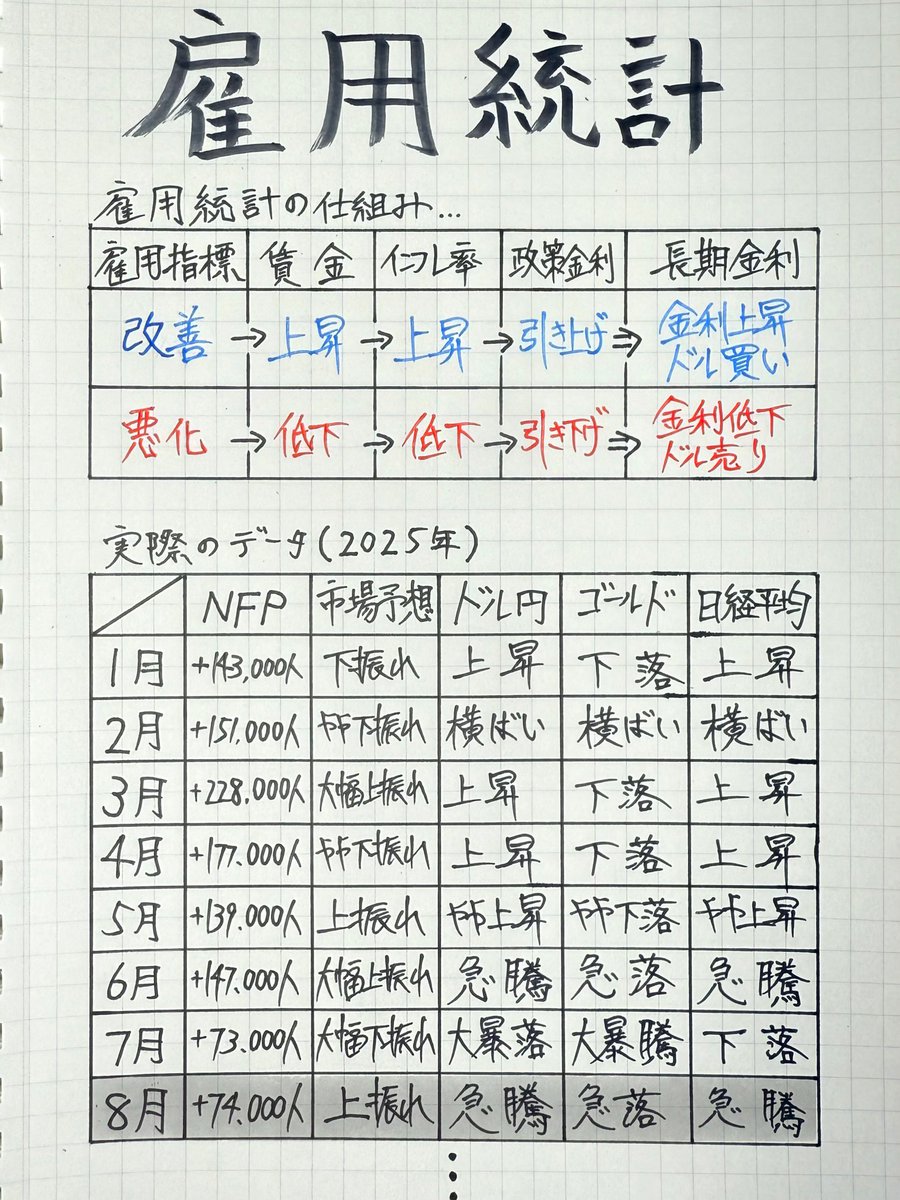 雇用統計
雇用統計の仕組み...
雇用指標 賃金 インフレ率 政策金利 長期金利
改善 → 上昇 → 上昇 → 引き上げ ⇒ 金利上昇
ドル買い
悪化 → 低下 → 低下 → 引き下げ ⇒ 金利低下
ドル売り
実際のデータ(2025年)
NFP 市場予想 ドル円 ゴールド 日経平均
1月 +143,000人 下振れ 上昇 下落 上昇
2月 +151,000人 やや下振れ 横ばい 横ばい 横ばい
3月 +228,000人 大幅上振れ 上昇 下落 上昇
4月 +177.000人 やや下振れ 上昇 下落 上昇
5月 +139.000人 上振れ やや上昇 やや下落 やや上昇
6月 +147.000人 大幅上振れ 急騰 急落 急騰
7月 +73.000人 大幅下振れ 大暴落 大暴騰 下落
8月 +74.000人 上振れ 急騰 急落 急騰